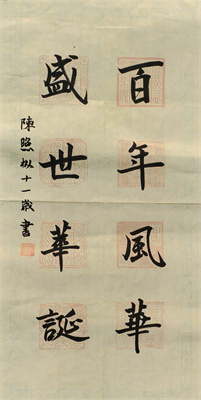 百年風華
盛世華誕
陳熙㳖十一歲書